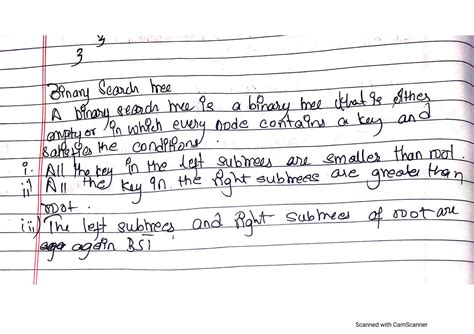 }
}
Binary Search tree
A binary search tree is a binary tree that is either
empty or in which every node contains a key and
satisfies the conditions.
i. All the key in the left subtrees are smaller than root.
ii) All the key in the right subtrees are greater than
root.
iii) The left subtrees and right subtrees of root are
again BST.
Scanned with CamScanner